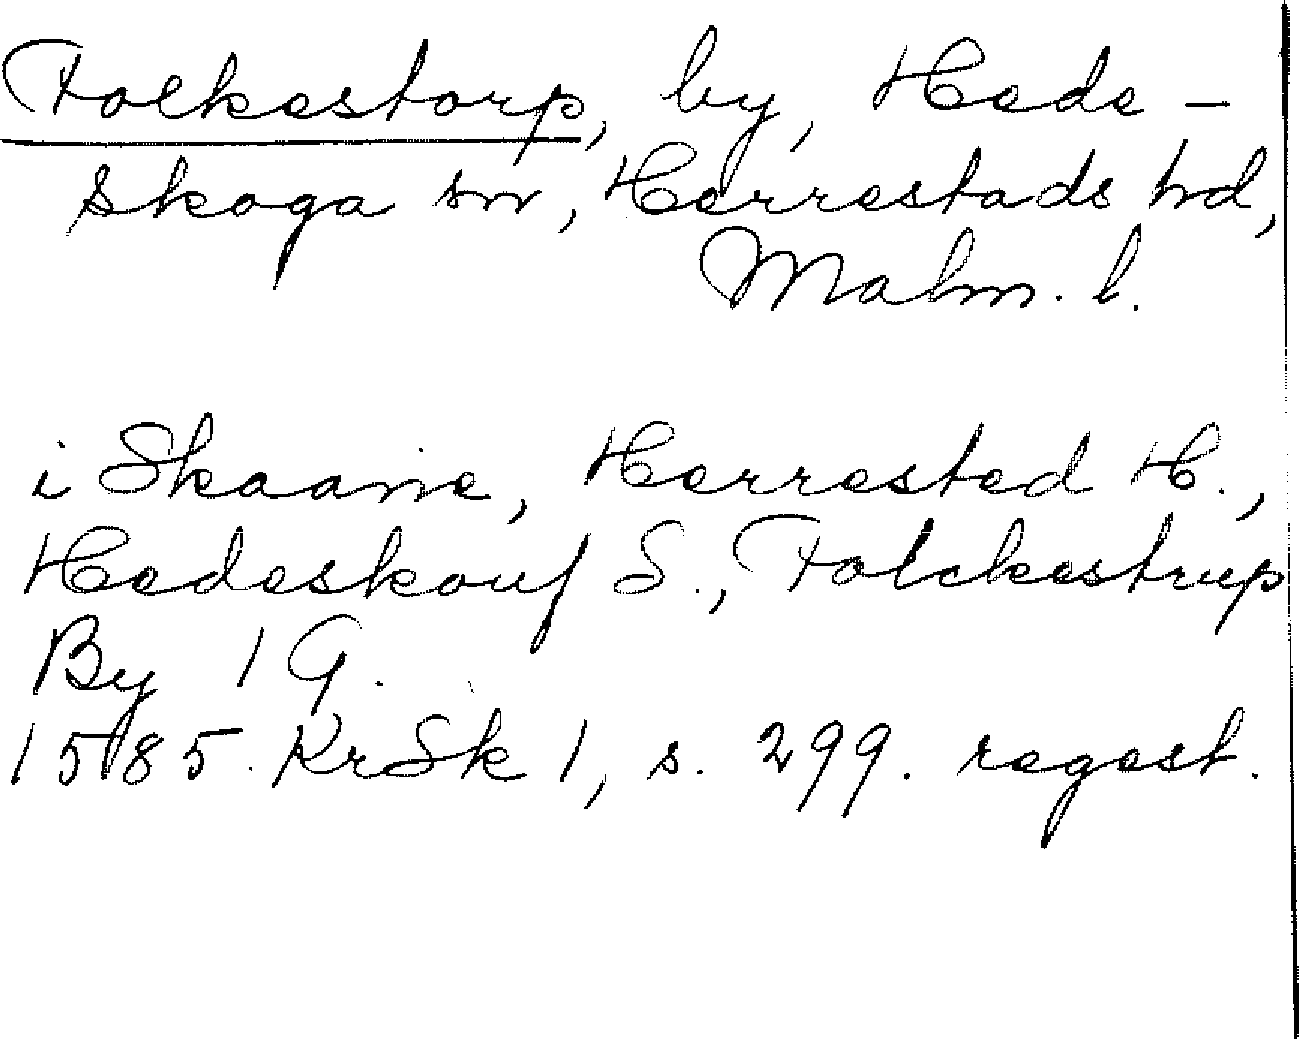 Folkestorp, by, Hede-
skoga sn, Herrestads hd,
Malm. l.
i Skaane, Herrested H.,
Hedeskouf S., Folckestrup
By 1 G.
1585. KrSk 1, s. 299. regest.